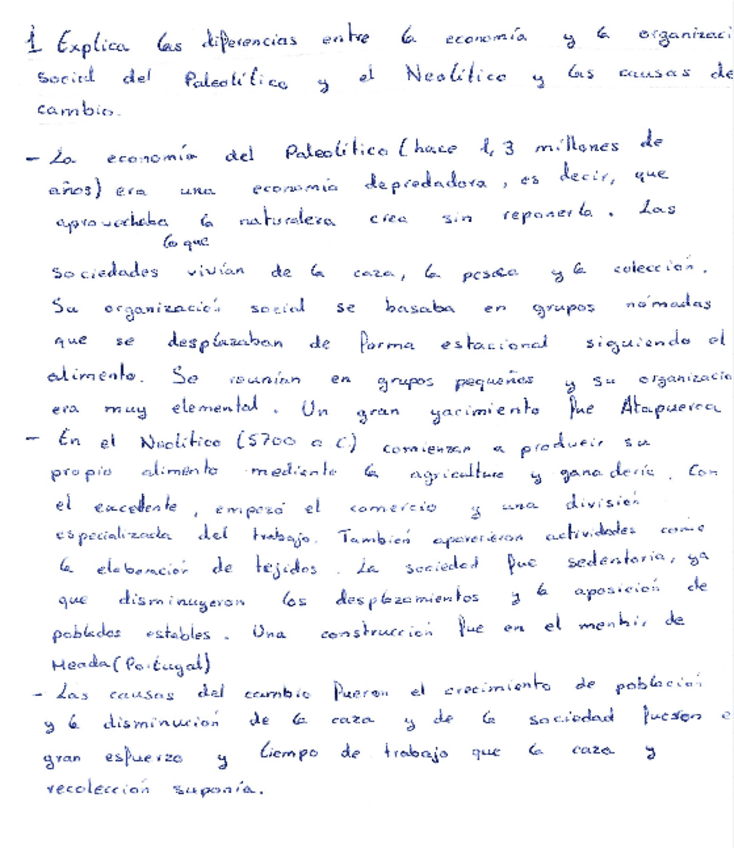 1 Explica las diferencias entre la economía y la organizaci
social del Paleolítico y el Neolítico y las causas de
cambio.
- La economía del Paleolítico (hace 1,3 millones de
años) era una economía depredadora, es decir, que
aprovechaba la naturaleza crea sin reponerla. Las
lo que
sociedades vivían de la caza, la pesca y la colección.
Su organización social se basaba en grupos nómadas
que se desplazaban de forma estacional siguiendo el
alimento. Se reunían en grupos pequeños y su organizacio
era muy elemental. Un gran yacimiento fue Atapuerca
- En el Neolítico (5700 a C) comienzan a producir su
propio alimento mediante la agricultura y ganadería. Con
el excedente, empezó el comercio y una división
especializada del trabajo. También aparecieron actividades como
la elaboración de tejidos. La sociedad fue sedentaria, ya
que disminuyeron los desplazamientos y la aposición de
poblados estables. Una construcción fue en el menhir de
Meada (Portugal)
- Las causas del cambio fueron el crecimiento de población
y la disminución de la caza y de la sociedad fueron e
gran esfuerzo y tiempo de trabajo que la caza y
recolección suponía.